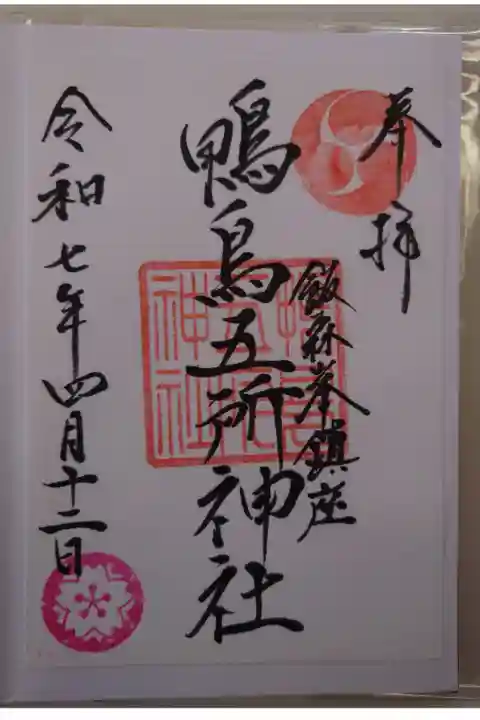 奉拝
飯森峯鎮座
鴨鳥五所神社
令和七年四月十二日